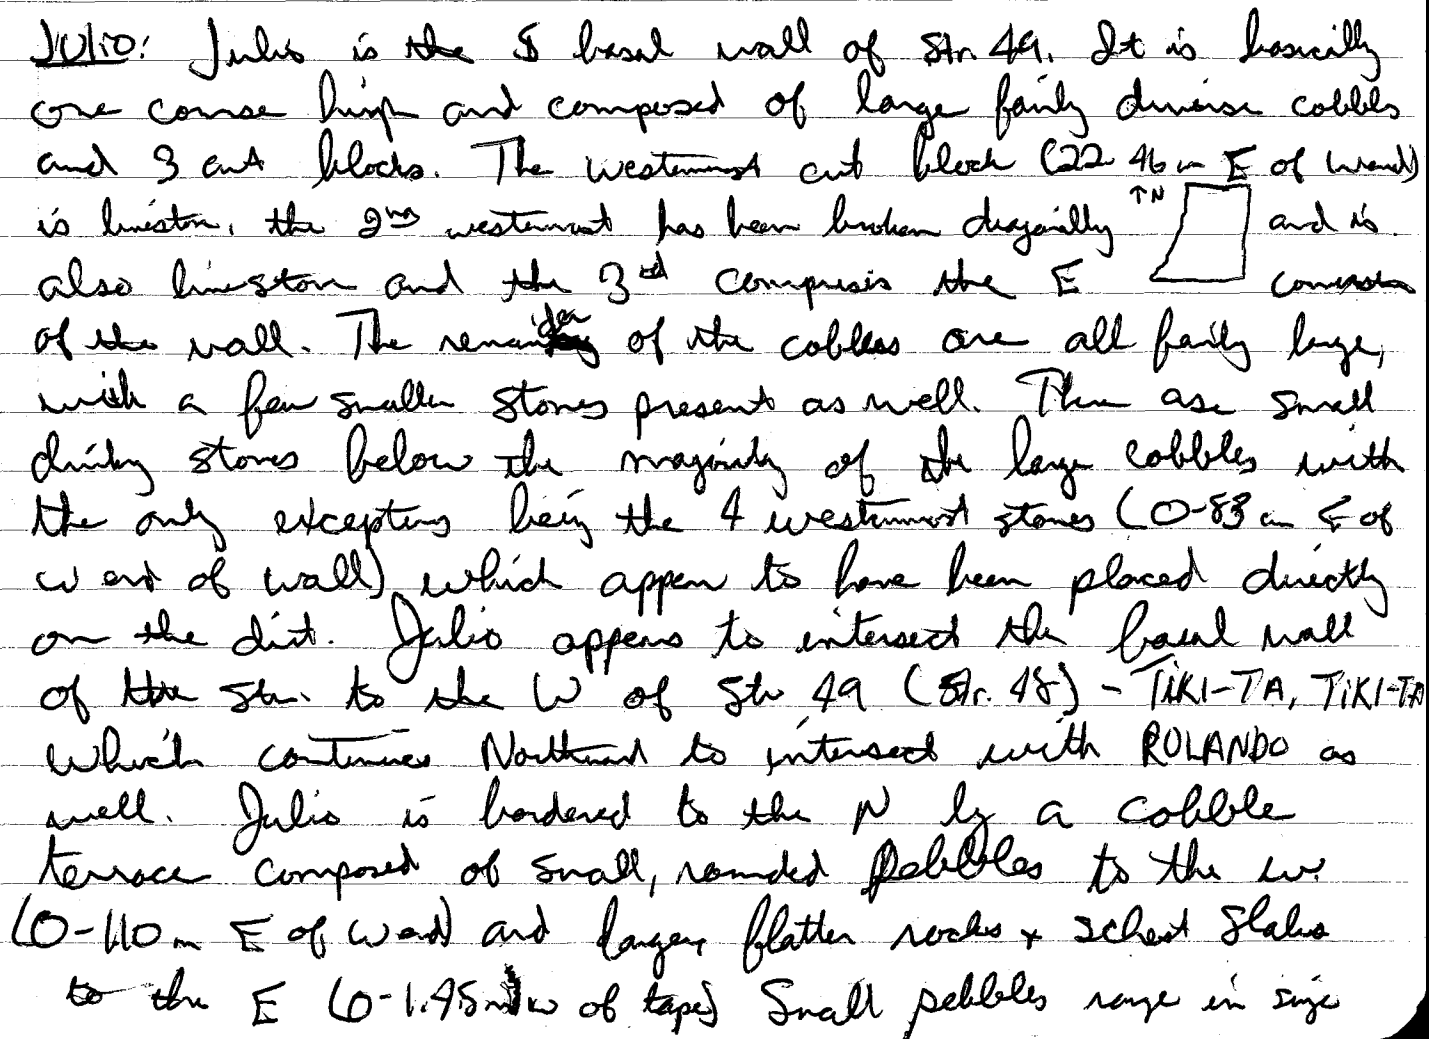 JULIO: Julio is the S basal wall of Str. 49. It is basically
one course high and composed of large fairly diverse cobbles
and 3 cut blocks. The westernmost cut block (22 46 m E of W end)
↑N
is limeston, the 2nd westernmost has been broken diagonally and is
also limestone and the 3rd comprises the E
of the wall. The remainder of the cobbles are all fairly large,
with a few smaller stones present as well. There are small
chinking stones below the majority of the large cobbles with
the only exceptions being the 4 westernmost stones (0-83 cm E of
W end of wall) which appear to have been placed directly
on the dirt. Julio appears to intersect the basal wall
of the Str. to the W of Str 49 (Str. 48) - TIKI-TA, TIKI-TA
which continues Northward to intersect with ROLANDO as
well. Julio is bordered to the N by a cobble
terrace composed of small, rounded pebbles to the W.
(0-110 m E of W end) and larger, flatter rocks + schist slabs
to the E (0-1.45 m W of tape) Small pebbles range in size